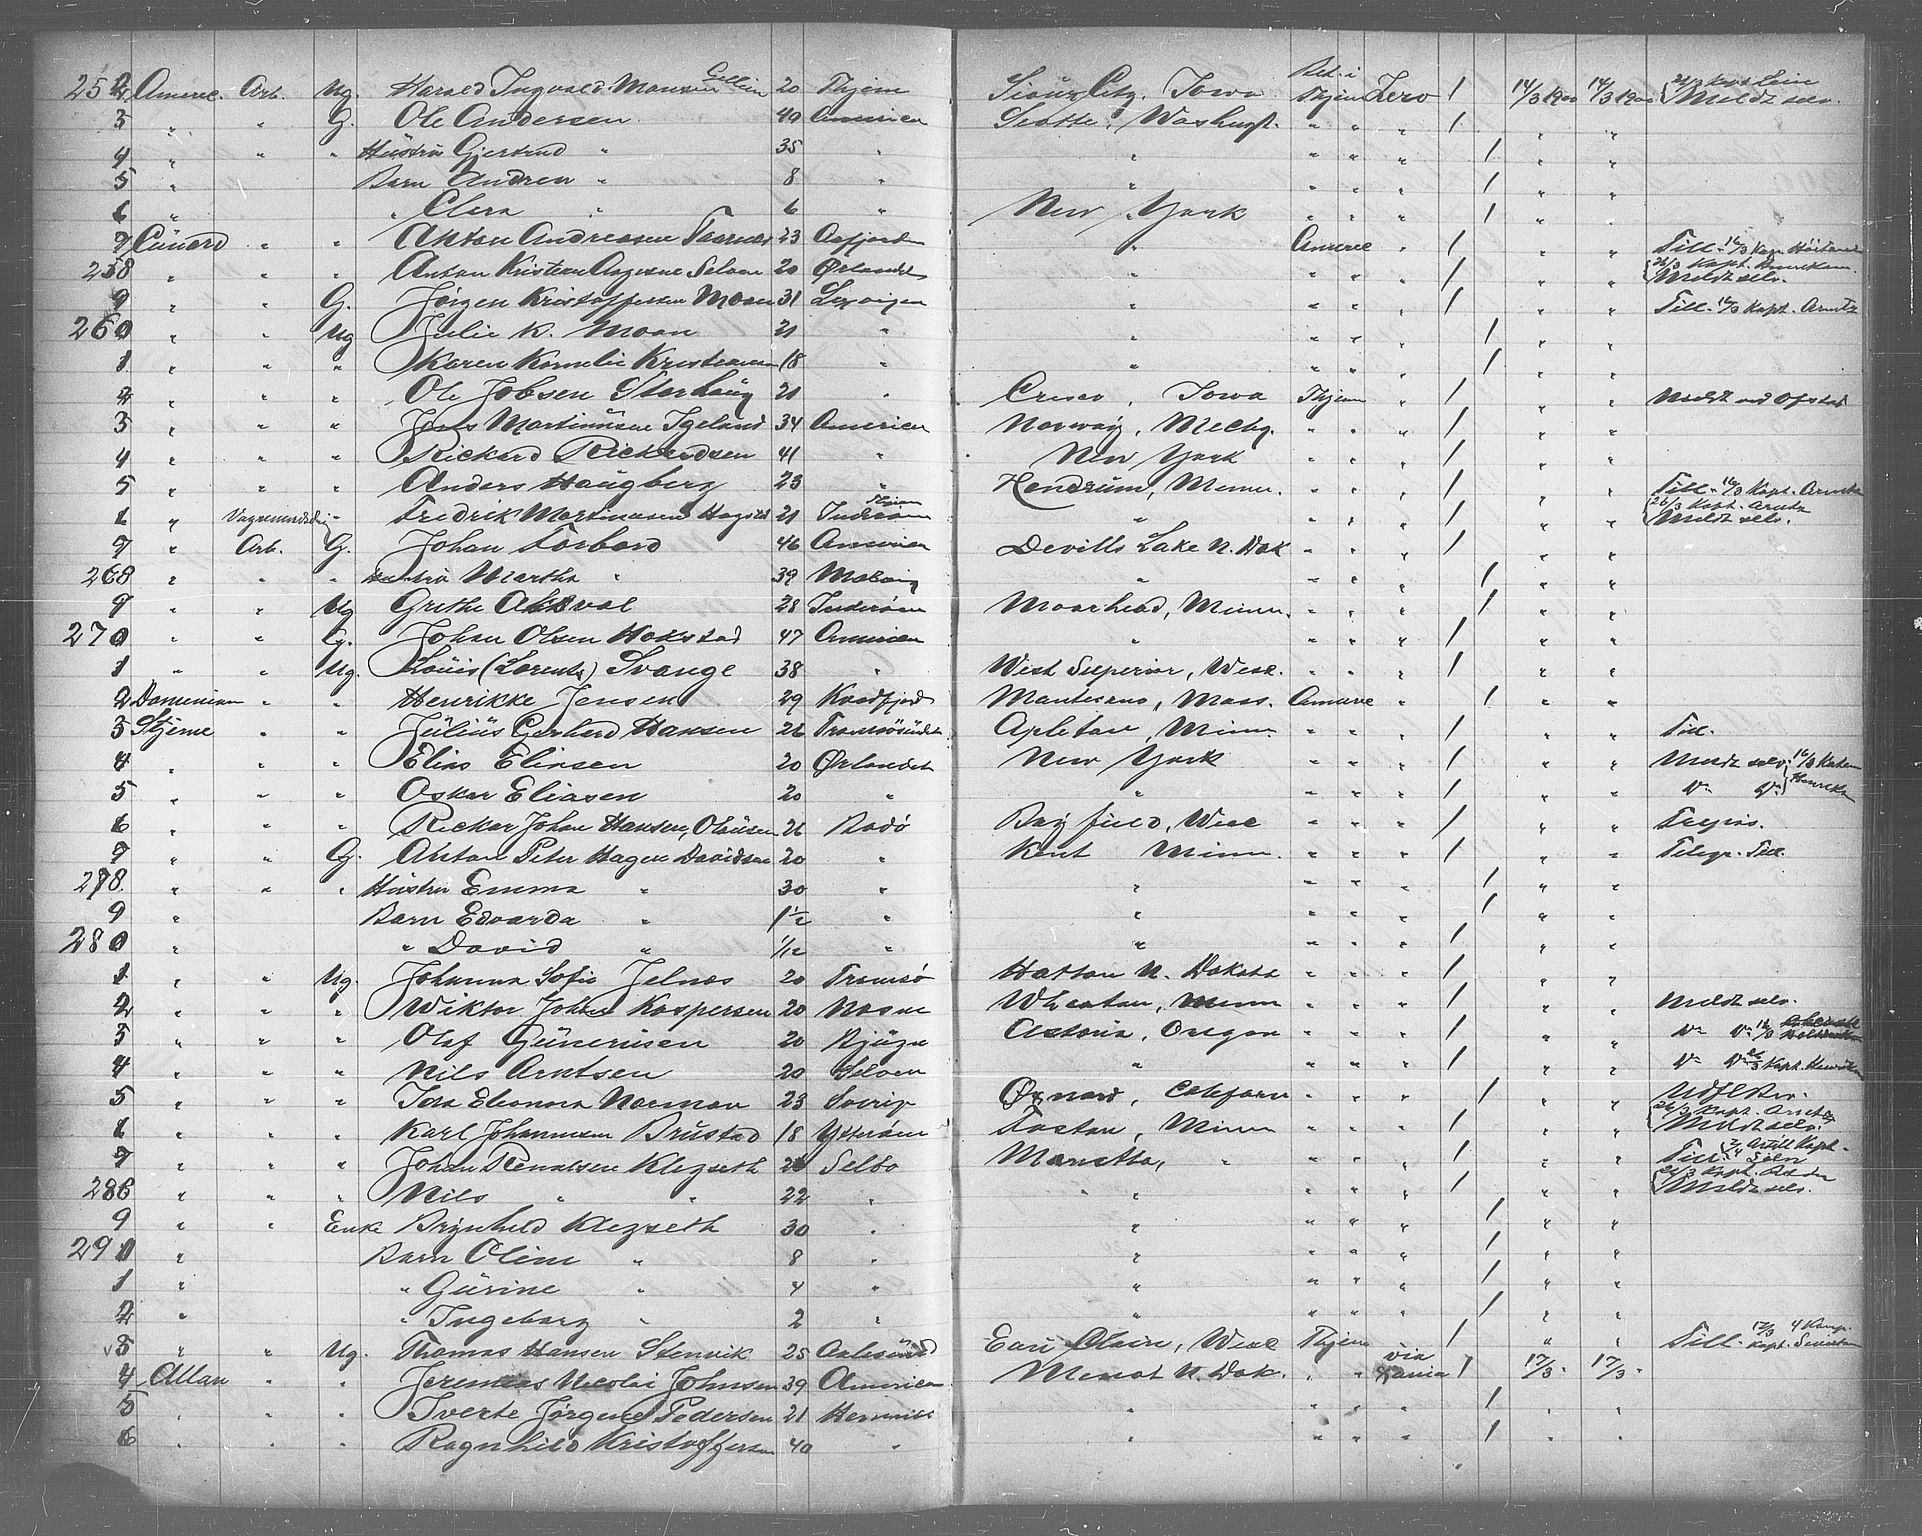 252 Americ. Arb. Ug. Harald Ingvald Monsen Gellin 20 Thjem Sioux City, Iowa Bet. i Thjem Zero 1 14/3 1900 14/3 1900 Meldt selv.
3 " " G. Ole Andersen 40 America Seattle, Washingt. " " " 1 " "
4 " " " Hustru Gjertrud " 35 " " " " " 1 " "
5 " Barn Andrea " 8 " " " " " 1 " "
6 " " Clara " 6 " New York " " " 1 " "
7 Cunard " " Anton Andreasen 23 Aafjorden " Americ " 1 " " Till. 16/3 Kap.
258 " " " Anton Kristian Selven 20 Ørlandet " " " " 1 " " Meldt selv.
9 " " G. Jørgen Kristoffersen Moan 31 Lexvigen " " " " 1 " " Till. 16/3 Kapt. Arntz
260 " " Ug Julie K. Moan 21 " " " " " 1 " "
1 " " " Karen Kornelie Kristiansen 18 " " " " " 1 " "
2 " " " Ole Jobsen Storhaug 21 " Cresco, Iowa Thjem " 1 " " Meldt ved Ofstad
3 " " " Martinusen Igeland 34 America Norway, Mechg. " " " 1 " "
4 " " " Rickard Rickardsen 41 " New York " " " 1 " "
5 " " " Anders Haugberg 23 " Hendrum, Minn. " " " 1 " " Till. 16/3 Kapt. Arntz
6 " " Fredrik Martinusen 21 Thjem Inderøen " " " " 1 " " 26/3 Kapt. Arntz Meldt selv.
7 " Arb. G. Johan Forbord 46 America Devills Lake N. Dak " " " 1 " "
268 " " " Hustru Martha " 39 Malvig " " " " 1 " "
9 " " Ug Grethe 28 Inderøen Moorhead, Minn. " " " 1 " "
270 " " G. Johan Olsen Hokstad 47 America " " " " 1 " "
1 " " Ug. Louis (Lorents) Svange 38 " West Superior, Wesc. " " " 1 " "
2 Dominion " " Henrikke Jensen 29 Kvædfjord Mass. Americ " 1 " "
3 Stjerne " " Julius Gerhard Hansen 26 Tromsösundet Apleton, Minn. " " " 1 " " Till.
4 " " " Elias Eliasen 20 Ørlandet New York " " " 1 " " Meldt selv. 16/3
5 " " " Oskar Eliasen 20 " " " " " 1 " "
6 " " " Rickar Johan Hansen, Olausen 26 Bodø Bayfield, Wisc " " " 1 " "
7 " " G. Anton Peter Hagen Davidsen 20 " Kent Minn. " " " 1 " " Telegr. Till.
278 " " " Hustru Emma " 30 " " " " " 1 " "
9 " Barn Edvarda " 1 1/2 " " " " " 1 " "
280 " " David " 1/12 " " " " " 1 " "
1 " " Ug. Johanna Sofie Jelnes 20 Tromsø Hatton N. Dakota " " " 1 " "
2 " " " Wiktor Johan Kaspersen 20 Nesne Wheaton, Minn " " " 1 " " Meldt selv.
3 " " " Olaf Guneriusen 20 Bjugn Astoria, Oregon " " " 1 " "
4 " " " Nils Arntsen 20 Selven " " " " 1 " "
5 " " " Ida Eleonora Norman 23 Øxnard, Californ " " " 1 " "
6 " " " Karl Johannesen Brustad 18 Ytterøen Foston, Minn " " " 1 " " 26/3 Kapt. Arntz Meldt selv.
7 " " " Johan Renaldsen Klegseth 26 Selbo Marietta, " " " " 1 " " Till.
288 " " " Nils " " 22 " " " " " 1 " " Meldt selv.
9 " " Enke Brynhild Klegseth 30 " " " " " 1 " "
290 " Barn Oline " 8 " " " " " 1 " "
1 " " Gurine " 4 " " " " " 1 " "
2 " " Ingeborg " 2 " " " " " 1 " "
3 " " Ug. Thomas Hansen Stenvik 25 Aalesund Eau Claire, Wesc Thjem " 1 " " Till. 17/3
4 Allan " " Jeremias Nicolai Johnsen 39 America Minot N. Dak. " " via 1 17/3 17/3
5 " " " Sverte Jørgine Pedersen 21 " " " " 1 " "
6 " " " Ragnhild Kristoffersen 40 " " " " " 1 " "